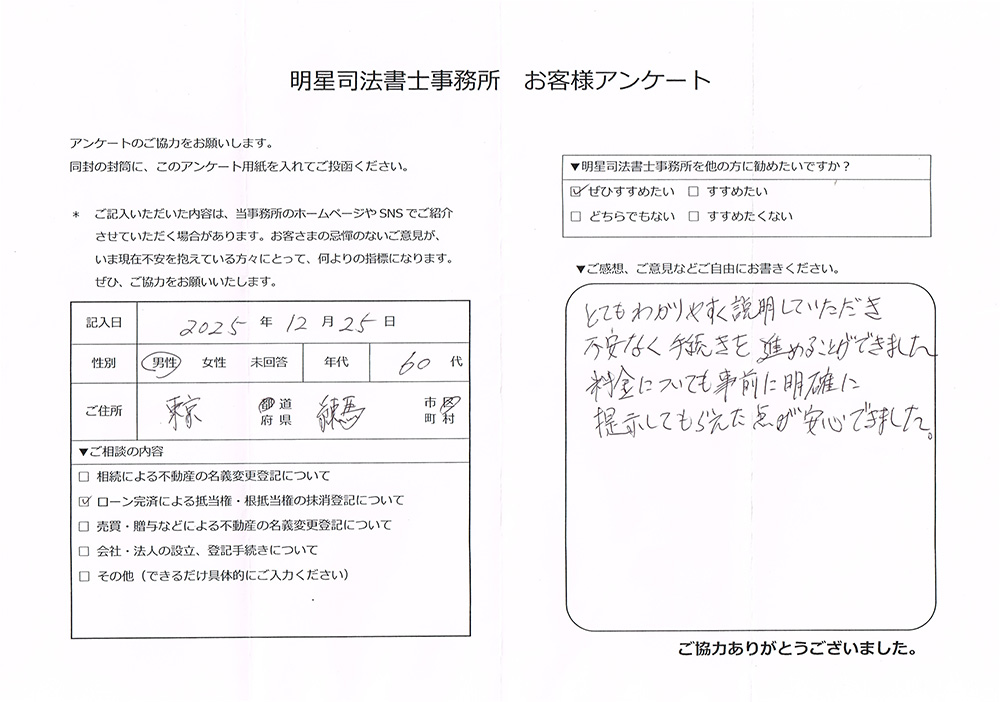 明星司法書士事務所　お客様アンケート
アンケートのご協力をお願いします。
同封の封筒に、このアンケート用紙を入れてご投函ください。
＊　ご記入いただいた内容は、当事務所のホームページや SNS でご紹介
させていただく場合があります。お客さまの忌憚のないご意見が、
いま現在不安を抱えている方々にとって、何よりの指標になります。
ぜひ、ご協力をお願いいたします。
記入日　2025 年 12 月 25 日
性別　男性　女性　未回答　年代　60 代
ご住所　東京　都道府県　練馬　市区町村
▼ご相談の内容
□ 相続による不動産の名義変更登記について
☑ ローン完済による抵当権・根抵当権の抹消登記について
□ 売買・贈与などによる不動産の名義変更登記について
□ 会社・法人の設立、登記手続きについて
□ その他（できるだけ具体的にご入力ください）
▼明星司法書士事務所を他の方に勧めたいですか？
☑ ぜひすすめたい　□ すすめたい
□ どちらでもない　□ すすめたくない
▼ご感想、ご意見などご自由にお書きください。
とてもわかりやすく説明していただき
不安なく手続きを進めることができました
料金についても事前に明確に
提示してもらえた点が安心できました。
ご協力ありがとうございました。